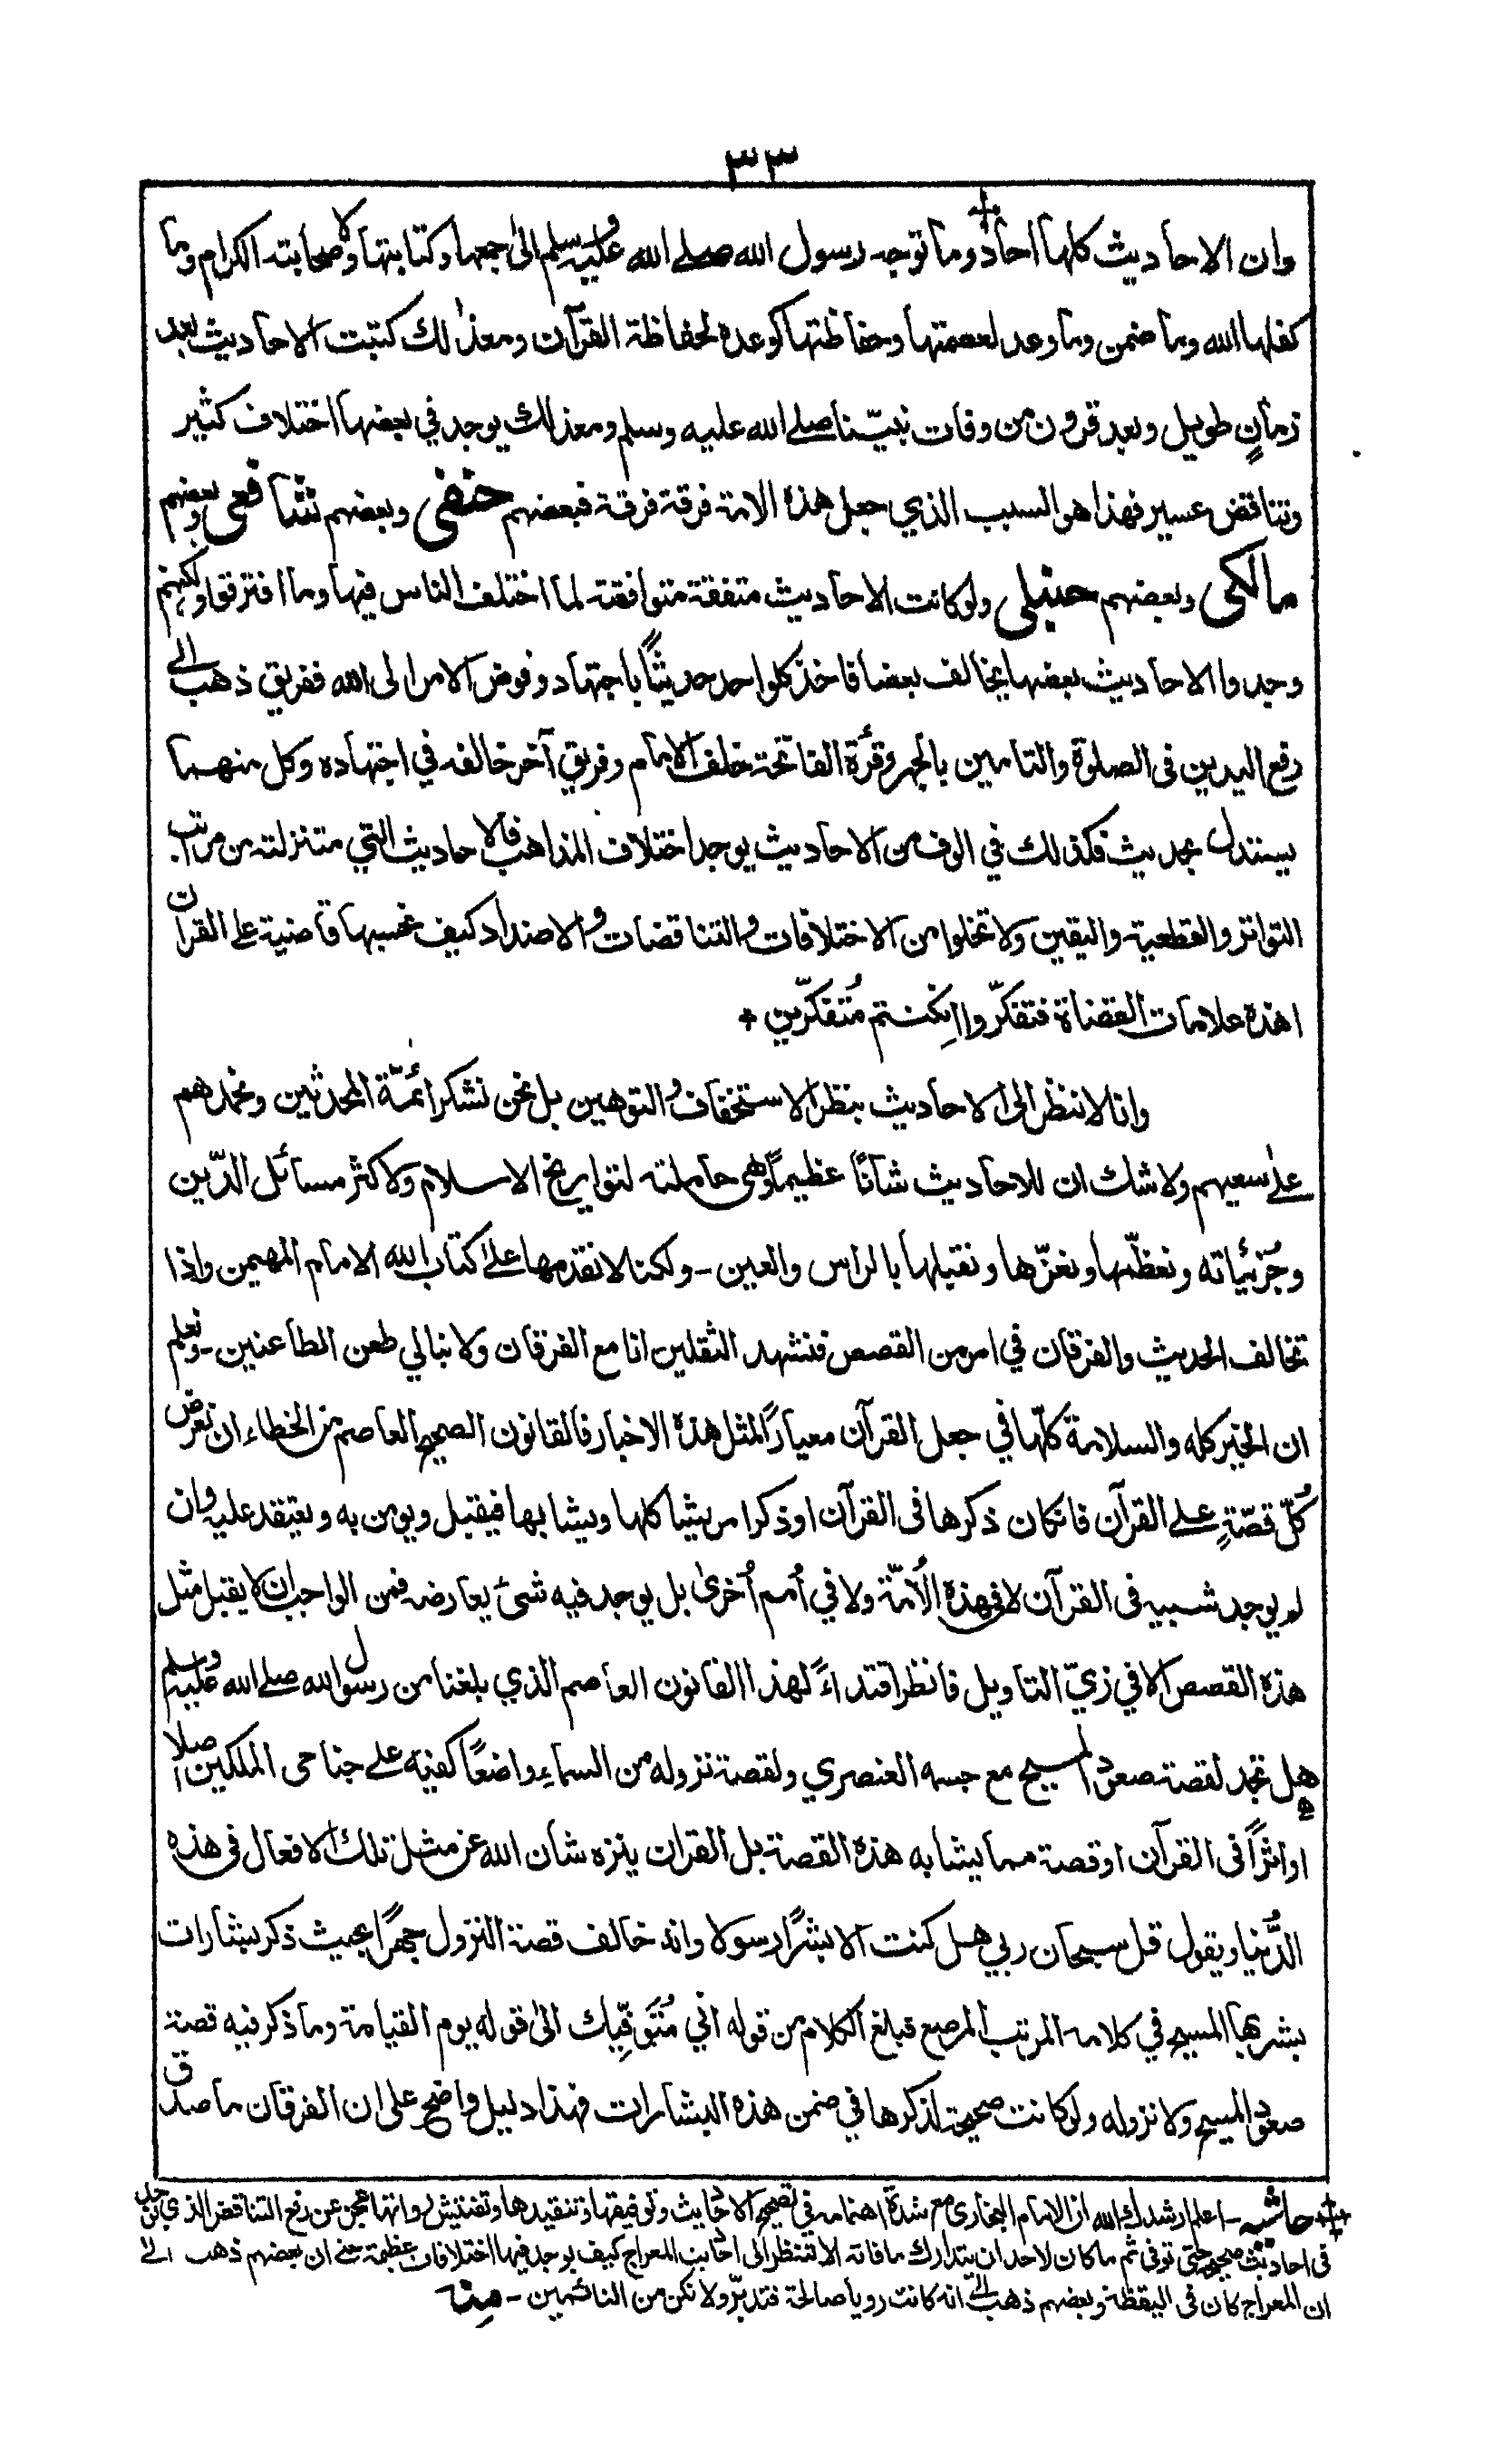 ٣٣
وان الاحاديث كلها احاد وما توجه رسول الله صلے الله عليه وسلم الى جمعها وكتابتها ولا صحابته الكرام وما
كفلها الله وما ضمن وما وعد لعصمتها وحفاظتها كوعده لحفاظة القرآن ومعذلك كتبت الاحاديث بعد
زمانٍ طويل وبعد قرون من وفات نبيّنا صلے الله عليه وسلم ومعذلك يوجد في بعضها اختلاف كثير
وتناقض عسير فهذا هو السبب الذي جعل هذه الامة فرقة فرقة فبعضهم حنفى وبعضهم شافعى وبعضهم
مالكى وبعضهم حنبلى ولو كانت الاحاديث متفقة متوافقة لما اختلف الناس فيها وما افترقوا ولكنهم
وجدوا الاحاديث بعضها يخالف بعضا فاخذ كلواحد حديثًا باجتهاد وفوض الامر الى الله ففريق ذهب الے
رفع اليدين فى الصلوة والتامين بالجهر وقرءة الفاتحة خلف الامام وفريق آخر خالفه في اجتهاده وكل منهما
يستدل بحديث فكذلك في الوف من الاحاديث يوجد اختلاف المذاهب فالاحاديث التي متنزلة من مراتب
التواتر والقطعية واليقين ولا تخلوا من الاختلافات والتناقضات والاضداد كيف نحسبها قاضية على القرآن
اهذه علامات القضاة فتفكّروا انكنتم مُتفكّرين +
وانا لا ننظر الى الاحاديث بنظر الاستخفاف والتوهين بل نحن نشكر ائمّة المحدثين ونحمدهم
علے سعيهم ولا شك ان للاحاديث شأنًا عظيمًا وهى حاملة لتواريخ الاسلام ولاكثر مسائل الدّين
وجُزئياته ونعظّمها ونعزّها ونقبلها بالراس والعين - ولكنا لا نقدمها علىٰ كتاب الله الامام المهيمن واذا
تخالف الحديث والفرقان في امر من القصص فنشهد الثقلين انا مع الفرقان ولا نبالي طعن الطاعنين - ونعلم
ان الخير كله والسلامة كلّها في جعل القرآن معيارًا لمثل هذه الاخبار فالقانون الصحيح العاصم من الخطاء ان نعرض
كُلّ قصّةٍ علے القرآن فانكان ذكرها فى القرآن او ذكر امر يشاكلها ويشابهها فيقبل ويومن به ويعتقد عليه وان
لم يوجد شبيه فى القرآن لا في هذه الأمّة ولا في أمم أُخرىٰ بل يوجد فيه شئ يعارضه فمن الواجب ان لا يقبل مثل
هذه القصص الا في زيّ التاويل فانظر اقتداءً لهذا القانون العاصم الذي بلغنا من رسول الله صلے الله عليه وسلم
هل تجد لقصة صعود المسيح مع جسمه العنصري ولقصة نزوله من السماء واضعًا كفيه علے جناحى الملكين اصلا
او اثرًا فى القرآن او قصة مما يشابه هذه القصة بل القران ينزه شان الله عن مثل تلك الافعال فى هذه
الدُّنيا ويقول قل سبحان ربي هل كنت الا بشرًا رسولا وانه خالف قصة النزول جهرًا بحيث ذكر بشارات
بشر بها المسيح في كلامه المرتب المرصع فبلغ الكلام من قوله اني مُتَوَفِّيك الىٰ قوله يوم القيامة وما ذكر فيه قصة
صعود المسيح ولا نزوله ولو كانت صحيحة لذكرها في ضمن هذه البشارات فهٰذا دليل واضح على ان الفرقان ما صدق
حاشيه - اعلم ارشدك الله ان الامام البخارى مع شدة اهتمامه فى تصحيح الاحاديث وتوفيقها وتنقيدها وتفتيش رواتها عجز عن رفع التناقض الذي يوجد
فى احاديث صحيحه حتى توفى ثم ما كان لاحد ان يتدارك ما فاته الا تنظر الى احاديث المعراج كيف يوجد فيها اختلافات عظيمة حتے ان بعضهم ذهب الے
ان المعراج كان فى اليقظة وبعضهم ذهب الے انه كانت رويا صالحة فتدبّر ولا تكن من النائمين - منه